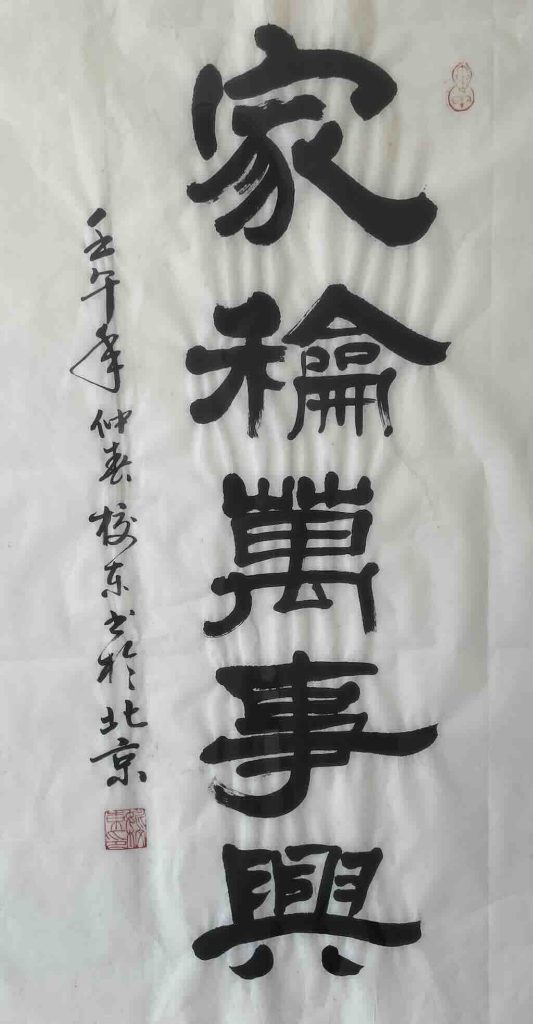 家龢萬事興
壬午年仲春校东书於北京